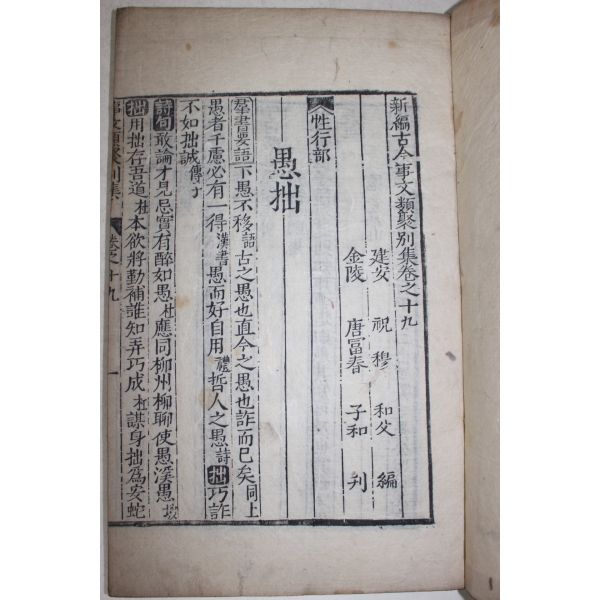 新編古今事文類聚別集卷之十九
建安 祝 穆 和父 編
金陵 唐冨春 子和 刋
性行部
愚拙
羣書要語下愚不移語古之愚也直今之愚也詐而已矣同上
愚者千慮必有一得漢書愚而好自用禮哲人之愚詩拙巧詐
不如拙誠傳
詩句敢論才見忌實有醉如愚杜應同柳州柳聊使愚溪愚坡
拙用拙存吾道杜本欲將勤補誰知弄巧成杜謀身拙爲安蛇
事文類聚別集 卷之十九 一